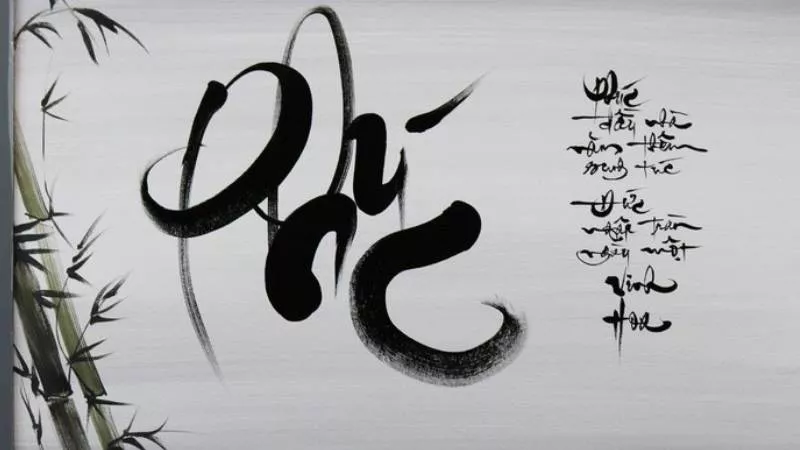 Phúc
Phúc
đầy nhà
năm thêm
sung túc
Đức
ngập tràn
ngày một
Vinh
Hoa